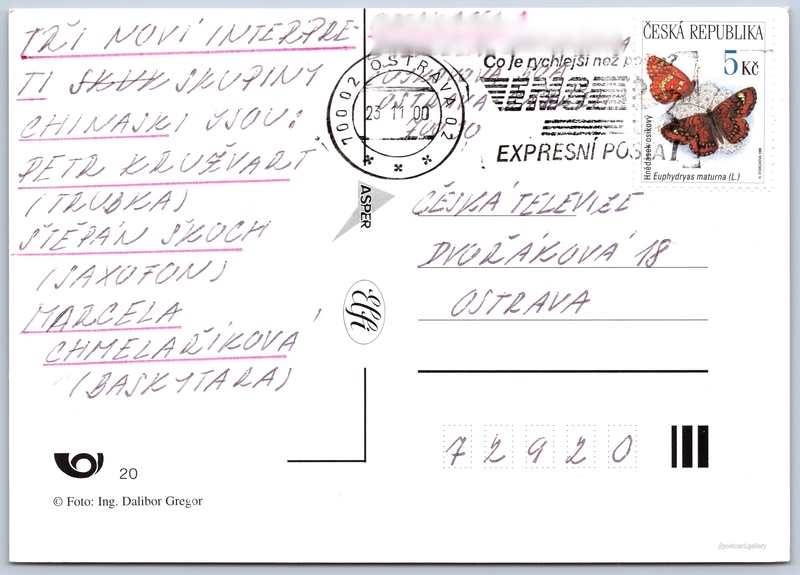 TŘI NOVÍ INTERPRE-
TI SKUK SKUPINY
CHINASKI JSOU:
PETR KRUŽVART
(TRUBKA)
ŠTĚPÁN ŠKOCH
(SAXOFON)
MARCELA
CHMELAŘÍKOVÁ
(BASKYTARA)
20
© Foto: Ing. Dalibor Gregor
ASPER
Elfi
OSTRAVA 02
700 02
23 11 00
Co je rychlejší než
EMS
EXPRESNÍ POŠTA
OSTRAVA
ČESKÁ REPUBLIKA
5 Kč
Hnědásek osikový
Euphydryas maturna (L.)
ČESKÁ TELEVIZE
DVOŘÁKOVA 18
OSTRAVA
72920
//postcard.gallery